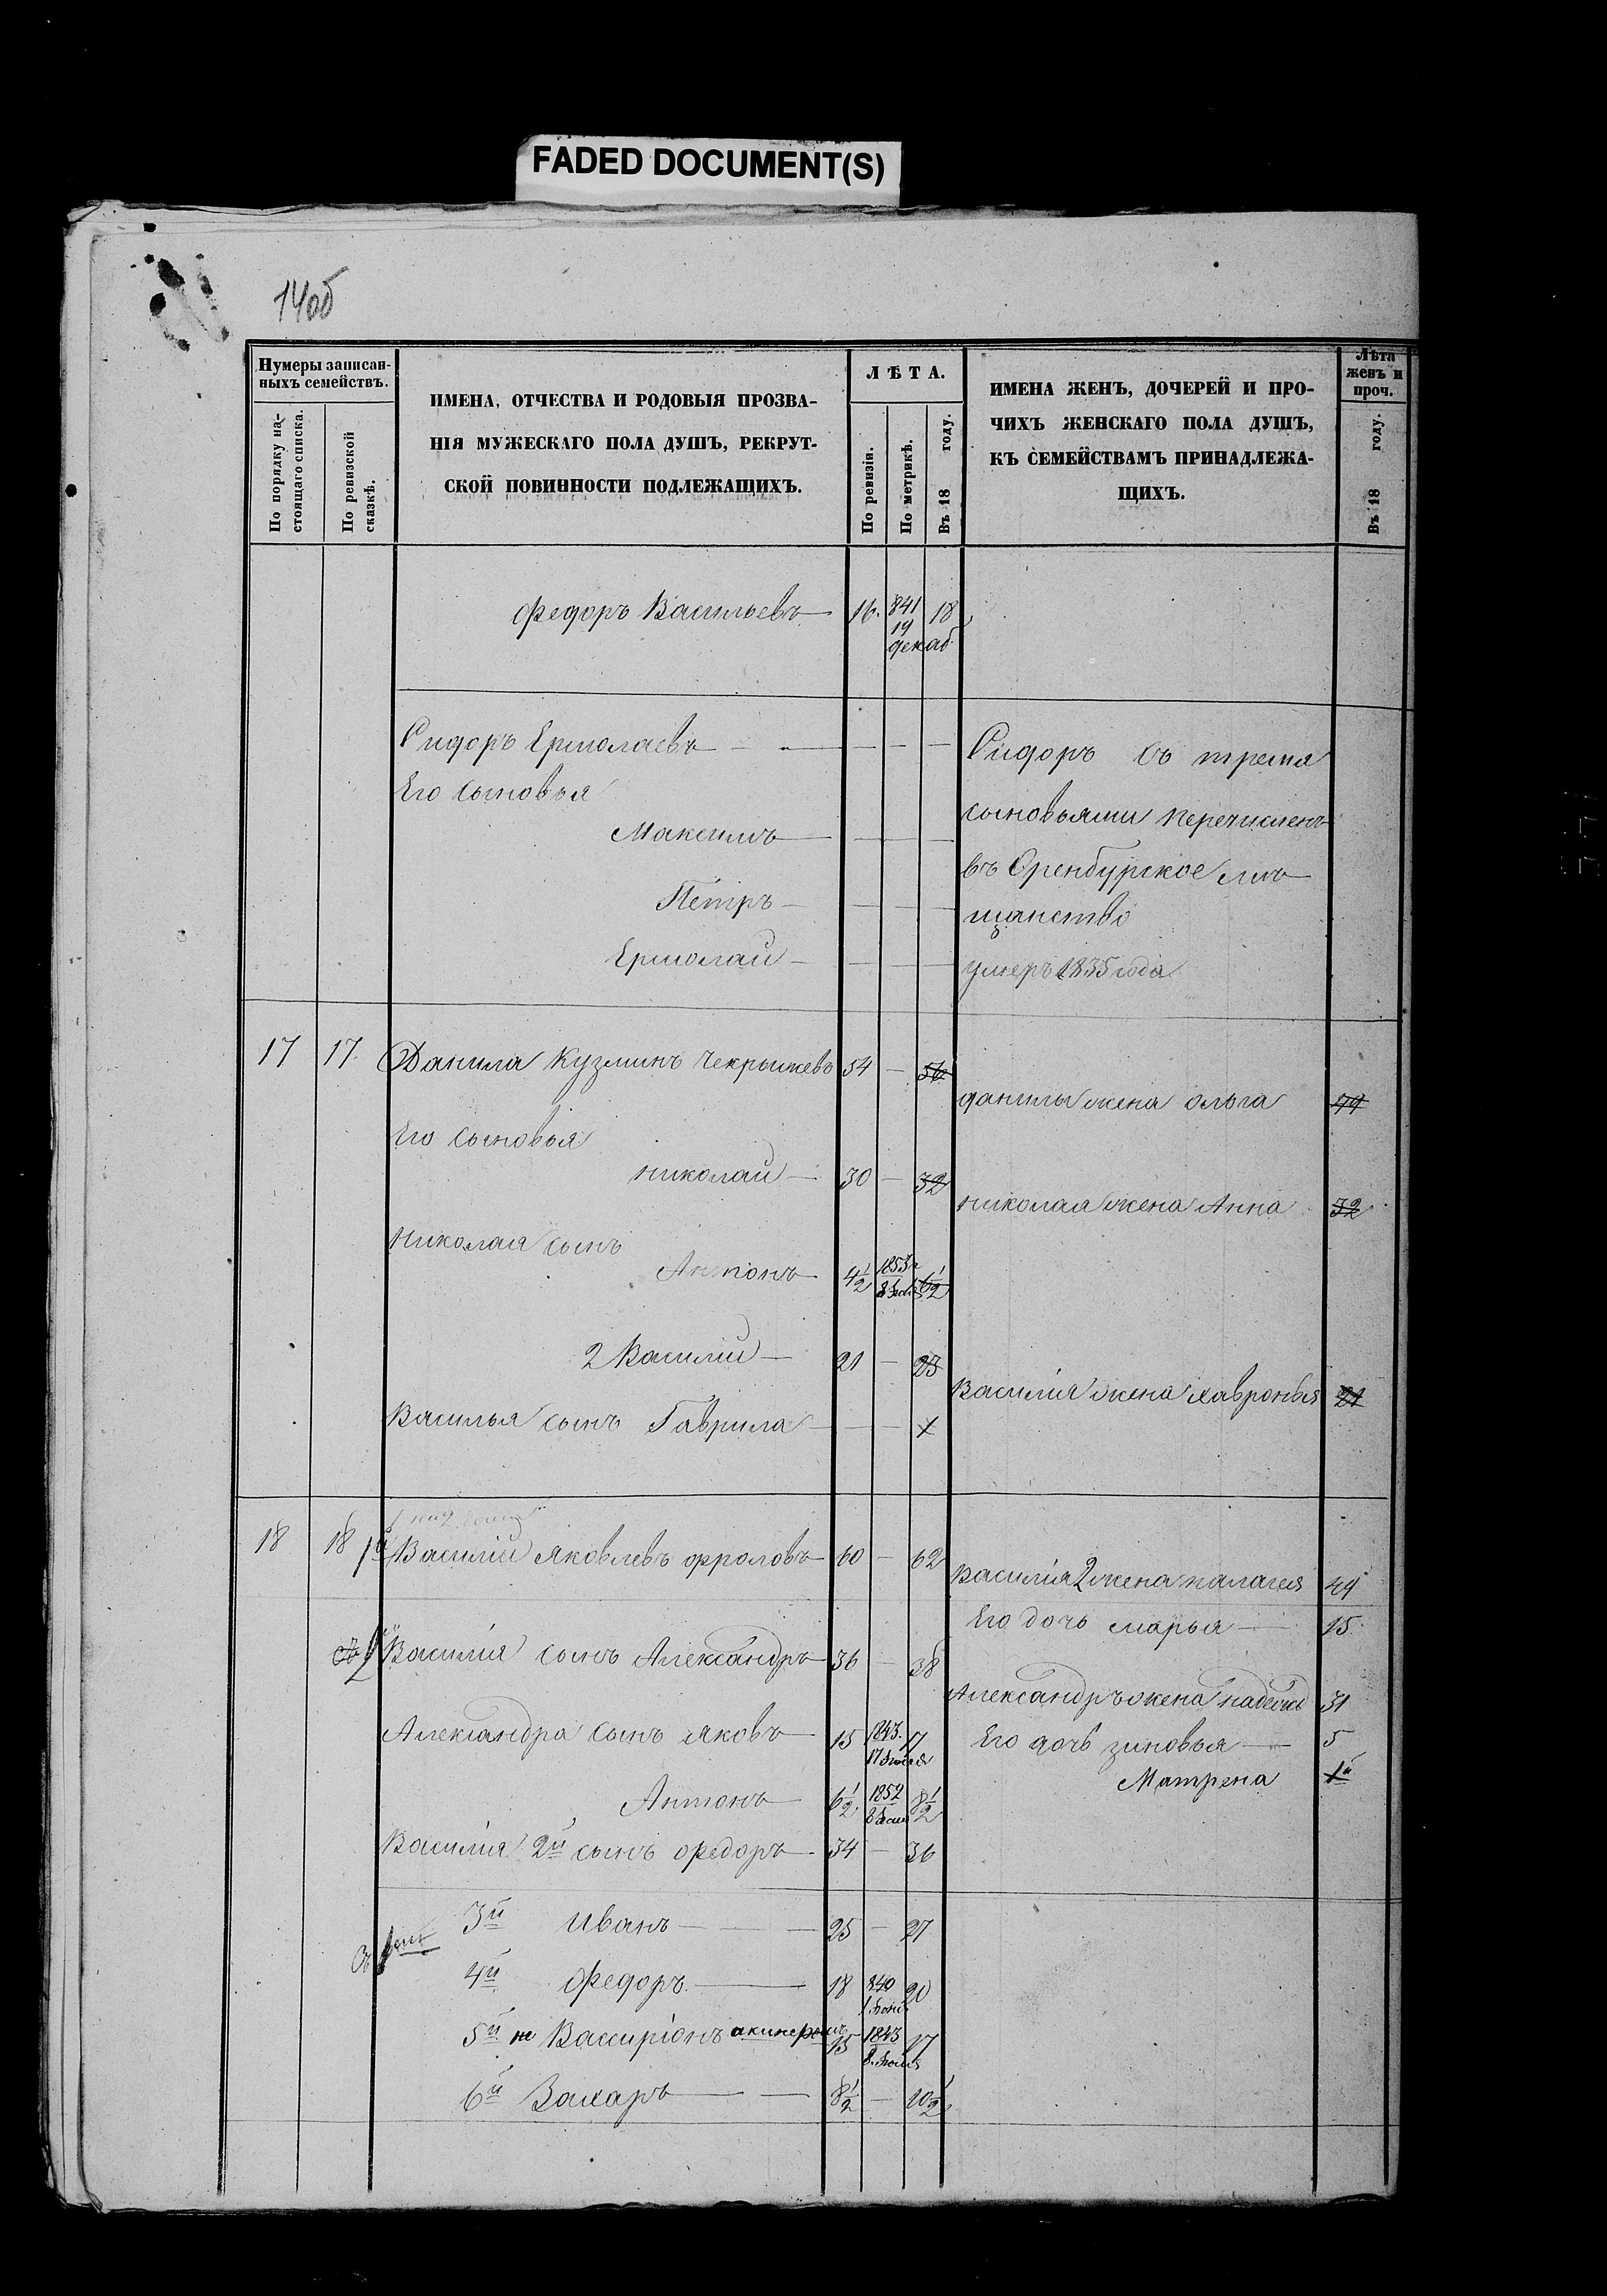 FADED DOCUMENT(S)
14об
Нумеры записан-
ныхъ семействъ.
По порядку на-
стоящаго списка.
По ревизской
сказкѣ.
ИМЕНА, ОТЧЕСТВА И РОДОВЫЯ ПРОЗВА-
НІЯ МУЖЕСКАГО ПОЛА ДУШЪ, РЕКРУТ-
СКОЙ ПОВИННОСТИ ПОДЛЕЖАЩИХЪ.
ЛѢТА.
По ревизіи.
По метрикѣ.
Въ 18 году.
ИМЕНА ЖЕНЪ, ДОЧЕРЕЙ И ПРО-
ЧИХЪ ЖЕНСКАГО ПОЛА ДУШЪ,
КЪ СЕМЕЙСТВАМЪ ПРИНАДЛЕЖА-
ЩИХЪ.
Лѣта
женъ и
проч.
Въ 18 году.
Федоръ Васильевъ — 16. 841 18
19
декаб.
Сидоръ Ермолаевъ — — — — Сидоръ съ тремя
Его сыновья
сыновьями перечисленъ
Максимъ — — — —
въ Оренбургское мѣ
Петръ — — — —
щанство
Ермолай — — — — умеръ 1835 года
17 17. Данила Кузминъ Чекрыжевъ 54 — 56
данилы жена ольга 49
Его сыновья
николай — 30 — 32
николая жена Анна 32
Николая сынъ
Антонъ — 4 1/2 1853 6 1/2
2 Василий — 21 — 23
Василія жена хавронья 21
Василья сынъ Гаврила — — —
18 18 1й Василий яковлевъ фроловъ 60 — 62
Василія 2 жена палагея 49
Его дочь марья — 15
2 Василія сынъ Александръ 36 — 38
Александръ жена 31
Александра сынъ яковъ — 15 1843. 17
17
Его дочь зиновья — 5
Матрена
Антонъ — 6 1/2 1852 8 1/2
8
Василія 2й сынъ федоръ — 34 — 36
3й Иванъ — — 25 — 27
4й Федоръ — 18 840 20
5й 15 1843 17
6й Захаръ — — 8 1/2 — 10 1/2